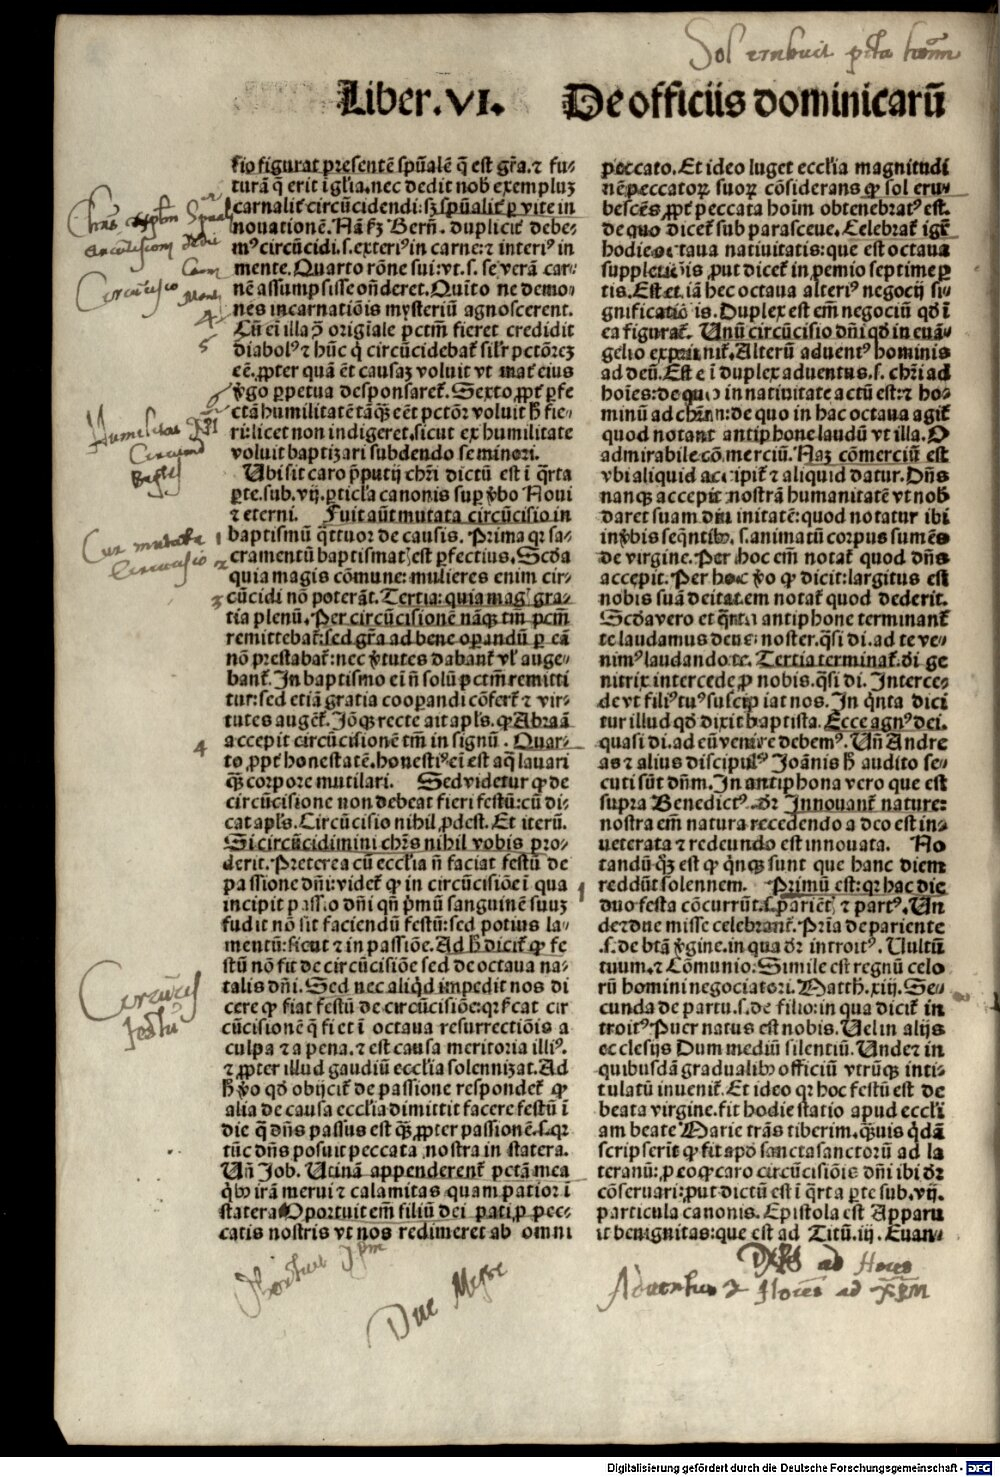 Sol erubuit pcta hoīm
Liber.VI. De officiis dominicarū
sio figurat presentē spūalē q̄ est gr̄a.⁊ fu⸗
turā q̄ erit ī gl̄ia.nec dedit nob̄ exempluȝ
carnalit̄ circūcidendi:sȝ spūalit̄ ꝑ vite in
nouationē. Nā ẜȝ Bern̄. duplicit̄ debe⸗
mꝰ circūcidi.s.exteriꝰ in carne:⁊ interiꝰ in
mente. Quarto rōne sui:vt.s.se verā car⸗
nē assumpsisse on̄deret. Quīto ne demo⸗
nes incarnatiōis mysteriū agnoscerent.
Cū ei illa ꝯ̄ origīale pctm̄ fieret credidit
diabolꝰ ⁊ hūc q̇ circūcidebat̄ silr̄ pctōreȝ
eē.ꝓpter quā ēt causaȝ voluit vt mat̄ eius
v̇go ꝑpetua desponsaret̄. Sexto ꝓpt̄ ꝑfe
ctā humilitatē tāqȝ eēt pctōr voluit h̄ fie⸗
ri:licet non indigeret.sicut ex humilitate
voluit baptizari subdendo se minori.
Ubi sit caro p̄putij chr̄i dictū est ī q̇rta
ꝑte.sub.vij.ꝑticl̄a canonis suꝑ v̇bo Noui
⁊ eterni. Fuit aūt mutata circūcisio in
baptismū q̄ttuor de causis. Prima qꝛ sa⸗
cramentū baptismatꝭ est ꝑfectius. Scd̄a
quia magis cōmune:mulieres enim cir⸗
cūcidi nō poterāt. Tertia:quia magꝭ gra⸗
tia plenū. Per circūcisionē nāqȝ tm̄ pctm̄
remittebat̄:sed gr̄a ad bene operandū ꝑ eā
nō prestabat̄:nec v̇tutes dabant̄ vl̓ auge⸗
bant̄. In baptismo ei n̄ solū pctm̄ remitti
tur:sed etiā gratia cooꝑandi cōfert̄ ⁊ vir⸗
tutes auget̄. Iōqȝ recte ait apl̄s. ꝙ Abraā
accepit circūcisionē tm̄ in signū. Quar⸗
to ꝓpt̄ honestatē.honestiꝰ ei est aq̄ lauari
q̄ȝ corpore mutilari. Sed videtur ꝙ de
circūcisione non debeat fieri festū:cū di⸗
cat apl̄s. Circūcisio nihil ꝓdest. Et iterū.
Si circūcidimini chr̄s nihil vobis pro⸗
derit. Preterea cū eccl̄ia n̄ faciat festū de
passione dn̄i:videt̄ ꝙ in circūcisiōe ī qua
incipit passio dn̄i qn̄ p̄mū sanguinē suuȝ
fudit nō sit faciendū festū:sed potius la⸗
mentū:sicut ⁊ in passiōe. Ad h̄ dicit̄ ꝙ fe
stū nō fit de circūcisiōe sed de octaua na⸗
talis dn̄i. Sed nec aliq̇d impedit nos di
cere ꝙ fiat festū de circūcisiōe:qꝛ s̄cat cir
cūcisionē q̄ fiet ī octaua resurrectiōis a
culpa ⁊ a pena.⁊ est causa meritoria illiꝰ.
⁊ ꝓpter illud gaudiū eccl̄ia solennizat. Ad
h̄ v̇o qd̄ obijcit̄ de passione respondet̄ ꝙ
alia de causa eccl̄ia dimittit facere festū ī
die q̄ dn̄s passus est q̄ȝ ꝓpter passionē.s.qꝛ
tūc dn̄s posuit peccata nostra in statera.
Un̄ Job. Utinā appenderent̄ pctā mea
q̇bꝰ irā merui ⁊ calamitas quam patior ī
statera. Oportuit em̄ filiū dei pati ꝓ pec⸗
catis nostris vt nos redimeret ab omni
peccato. Et ideo luget eccl̄ia magnitudi
nē peccatoꝝ suoꝝ cōsiderans ꝙ sol eru⸗
bescēs ꝓpt̄ peccata hoīm obtenebratꝰ est.
de quo dicet̄ sub parasceue. Celebrat̄ igit̄
hodie octaua nativitatis:que est octaua
suppletiōis ꝓut dicet̄ in ꝓemio septime ꝑ
tis. Est et iā hec octaua alteriꝰ negocij si⸗
gnificatiōis. Duplex est em̄ negociū qd̄ ī
ea figurat̄. Unū circūcisio dn̄i qd̄ in euā⸗
gelio exprimit̄. Alterū aduentꝰ hominis
ad deū. Est eī duplex aduentus.s.chr̄i ad
hoīes:de quo in nativitate actū est:⁊ ho⸗
minū ad chr̄m:de quo in hac octaua agit̄
quod notant antiphone laudū vt illa. O
admirabile cōmerciū. Naȝ cōmerciū est
vbi aliquid accipit̄ ⁊ aliquid datur. Dn̄s
nanqȝ accepit nostrā humanitatē vt nob̄
daret suam diuinitatē:quod notatur ibi
in v̇bis seq̄ntibꝰ.s.animatū corpus sumēs
de virgine. Per hoc em̄ notat̄ quod dn̄s
accepit. Per hoc v̇o ꝙ dicit:largitus est
nobis suā deitatem notat̄ quod dederit.
Scd̄a vero et q̄nta antiphone terminant̄
te laudamus deus noster.q̄si di.ad te ve⸗
nimꝰ laudando te. Tertia terminat̄.dei ge
nitrix intercede ꝓ nobis.q̄si di. Interce⸗
de vt filiꝰ tuꝰ suscipiat nos. In q̇nta dici
tur illud qd̄ dixit baptista. Ecce agnꝰ dei.
quasi di.ad eū venire debemꝰ. Un̄ Andre
as ⁊ alius discipulꝰ Joānis h̄ audito se⸗
cuti sūt dn̄m. In antiphona vero que est
supra Benedictꝰ.dr̄ Innouant̄ nature:
nostra em̄ natura recedendo a deo est in⸗
ueterata ⁊ redeundo est innouata. No
tandū q̄ȝ est ꝙ q̇nqȝ sunt que hanc diem
reddūt solennem. Primū est:qꝛ hac die
duo festa cōcurrūt.s.pariētꝭ ⁊ partꝰ. Un
de ⁊ due misse celebrant̄. Pria de pariente
.s.de btā v̇gine.in qua dr̄ introitꝰ. Uultū
tuum.⁊ Cōmunio:Simile est regnū celo
rū homini negociatori. Matth.xiij. Se⸗
cunda de partu.s.de filio:in qua dicit̄ in
troitꝰ Puer natus est nobis. Uel in alijs
ecclesijs Dum mediū silentiū. Unde ⁊ in
quibusdā gradualibꝰ officiū vtrūqȝ inti⸗
tulatū inuenit̄. Et ideo qꝛ hoc festū est de
beata virgine.fit hodie statio apud eccl̄i
am beate Marie trās tiberim.q̄ȝuis q̇dā
scripserit ꝙ fit apd̄ sancta sanctorū ad la
teranū:ꝓ eo ꝙ caro circūcisiōis dn̄i ibi dr̄
cōseruari:ꝓut dictū est ī q̇rta ꝑte sub.vij.
particula canonis. Epistola est Apparu
it benignitas:que est ad Titū.iij. Euan⸗
Cur mutata
Circūcisio
1
2
3
4
4
5
6
1
Circūcis
festū
Due Misse
Aduentus